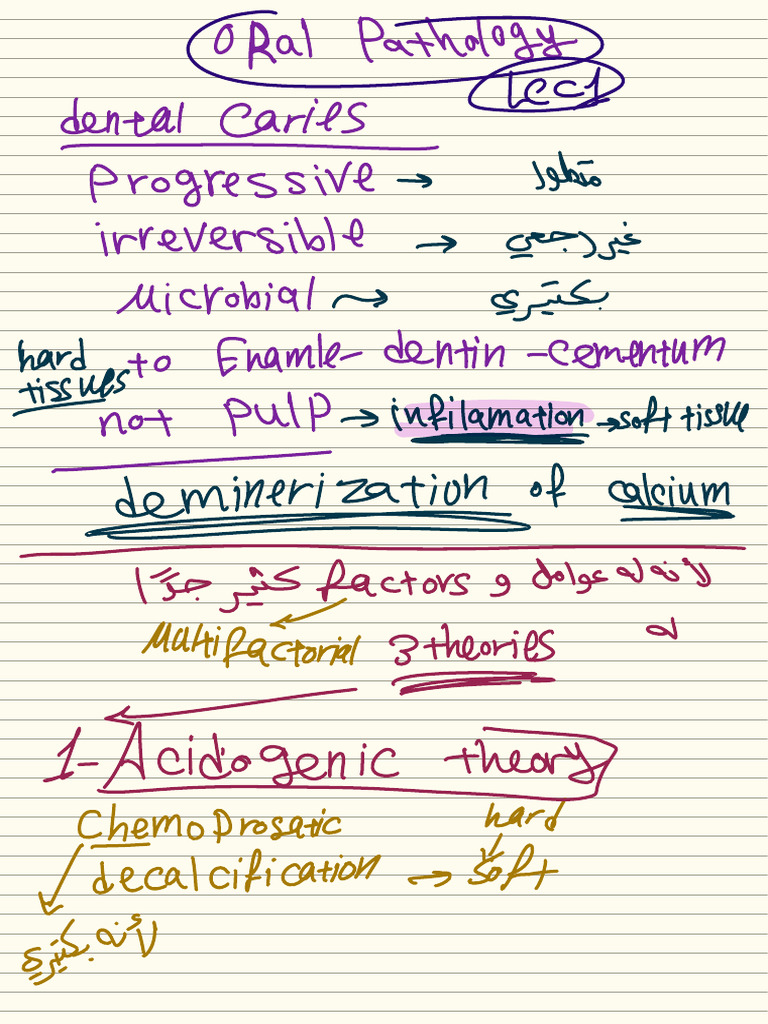 ORal Pathology
Lec1
dental caries
Progressive → متطور
irreversible → غير رجعي
Microbial → بكتيري
hard tissues
to Enamle- dentin -cementum
not pulp → infilamation → soft tissue
deminerization of calcium
لأنه له عوامل و factors كثير جدًا
Multifactorial
له 3 theories
1- Acidogenic theory
Chemoprosatic
hard
decalcification → soft
لأنه بكتيري